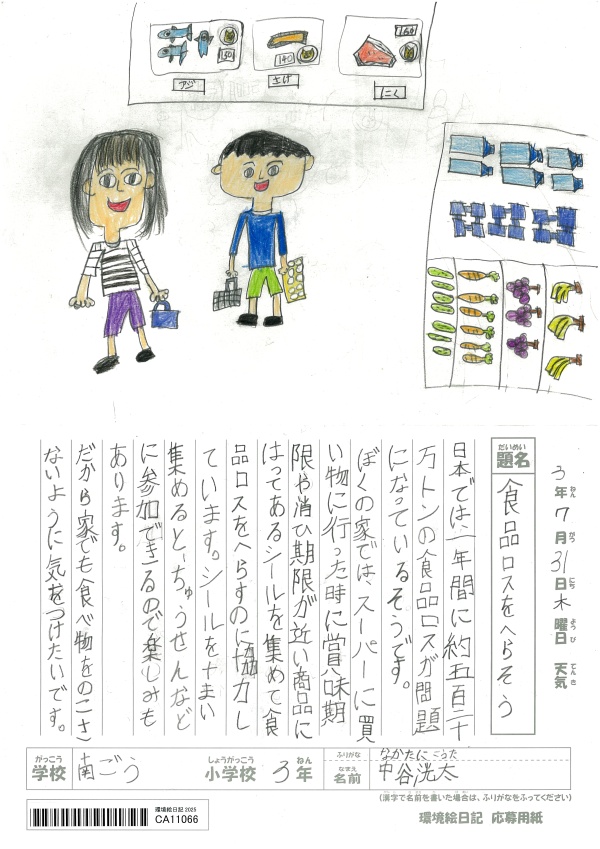 150
140
160
アジ
さけ
にく
3年7月31日木曜日 天気
ねん がつ にち ようび てんき
だいめい
題名
食品ロスをへらそう
日本では、一年間に約五百二十
万トンの食品ロスが問題
になっているそうです。
ぼくの家では、スーパーに買
い物に行った時に賞味期
限や消ひ期限が近い商品に
はってあるシールを集めて食
品ロスをへらすのに協力し
ています。シールを十まい
集めると、ちゅうせんなど
に参加できるので楽しみも
あります。
だから家でも食べ物をのこさ
ないように気をつけたいです。
がっこう
学校
南ごう
しょうがっこう
小学校
3
ねん
年
ふりがな
なかたに こうた
なまえ
名前
中谷洸太
(漢字で名前を書いた場合は、ふりがなをふってください)
環境絵日記 2025
CA11066
環境絵日記 応募用紙